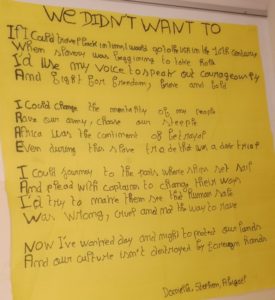 WE DIDN'T WANT TO
If I Could travel back in time I would go to the USA in the 16th century
When slavery was beginning to take hold
I'd use my voice to speak out courageously
And fight for freedom, brave and bold
I could change the mentality of my people
Have our army, chase our steeple
Africa was the continent of betrayal
Even during this slave trade that was a door
I could journey to the ports where ships set sail
And plead with captains to change their ways
I'd try to make them see the human
Was wrong, cruel and not the way to
NOW I've worked day and night to protect our lands
And our culture isn't destroyed by foreign hands
Daniella, Stephen, Abigael